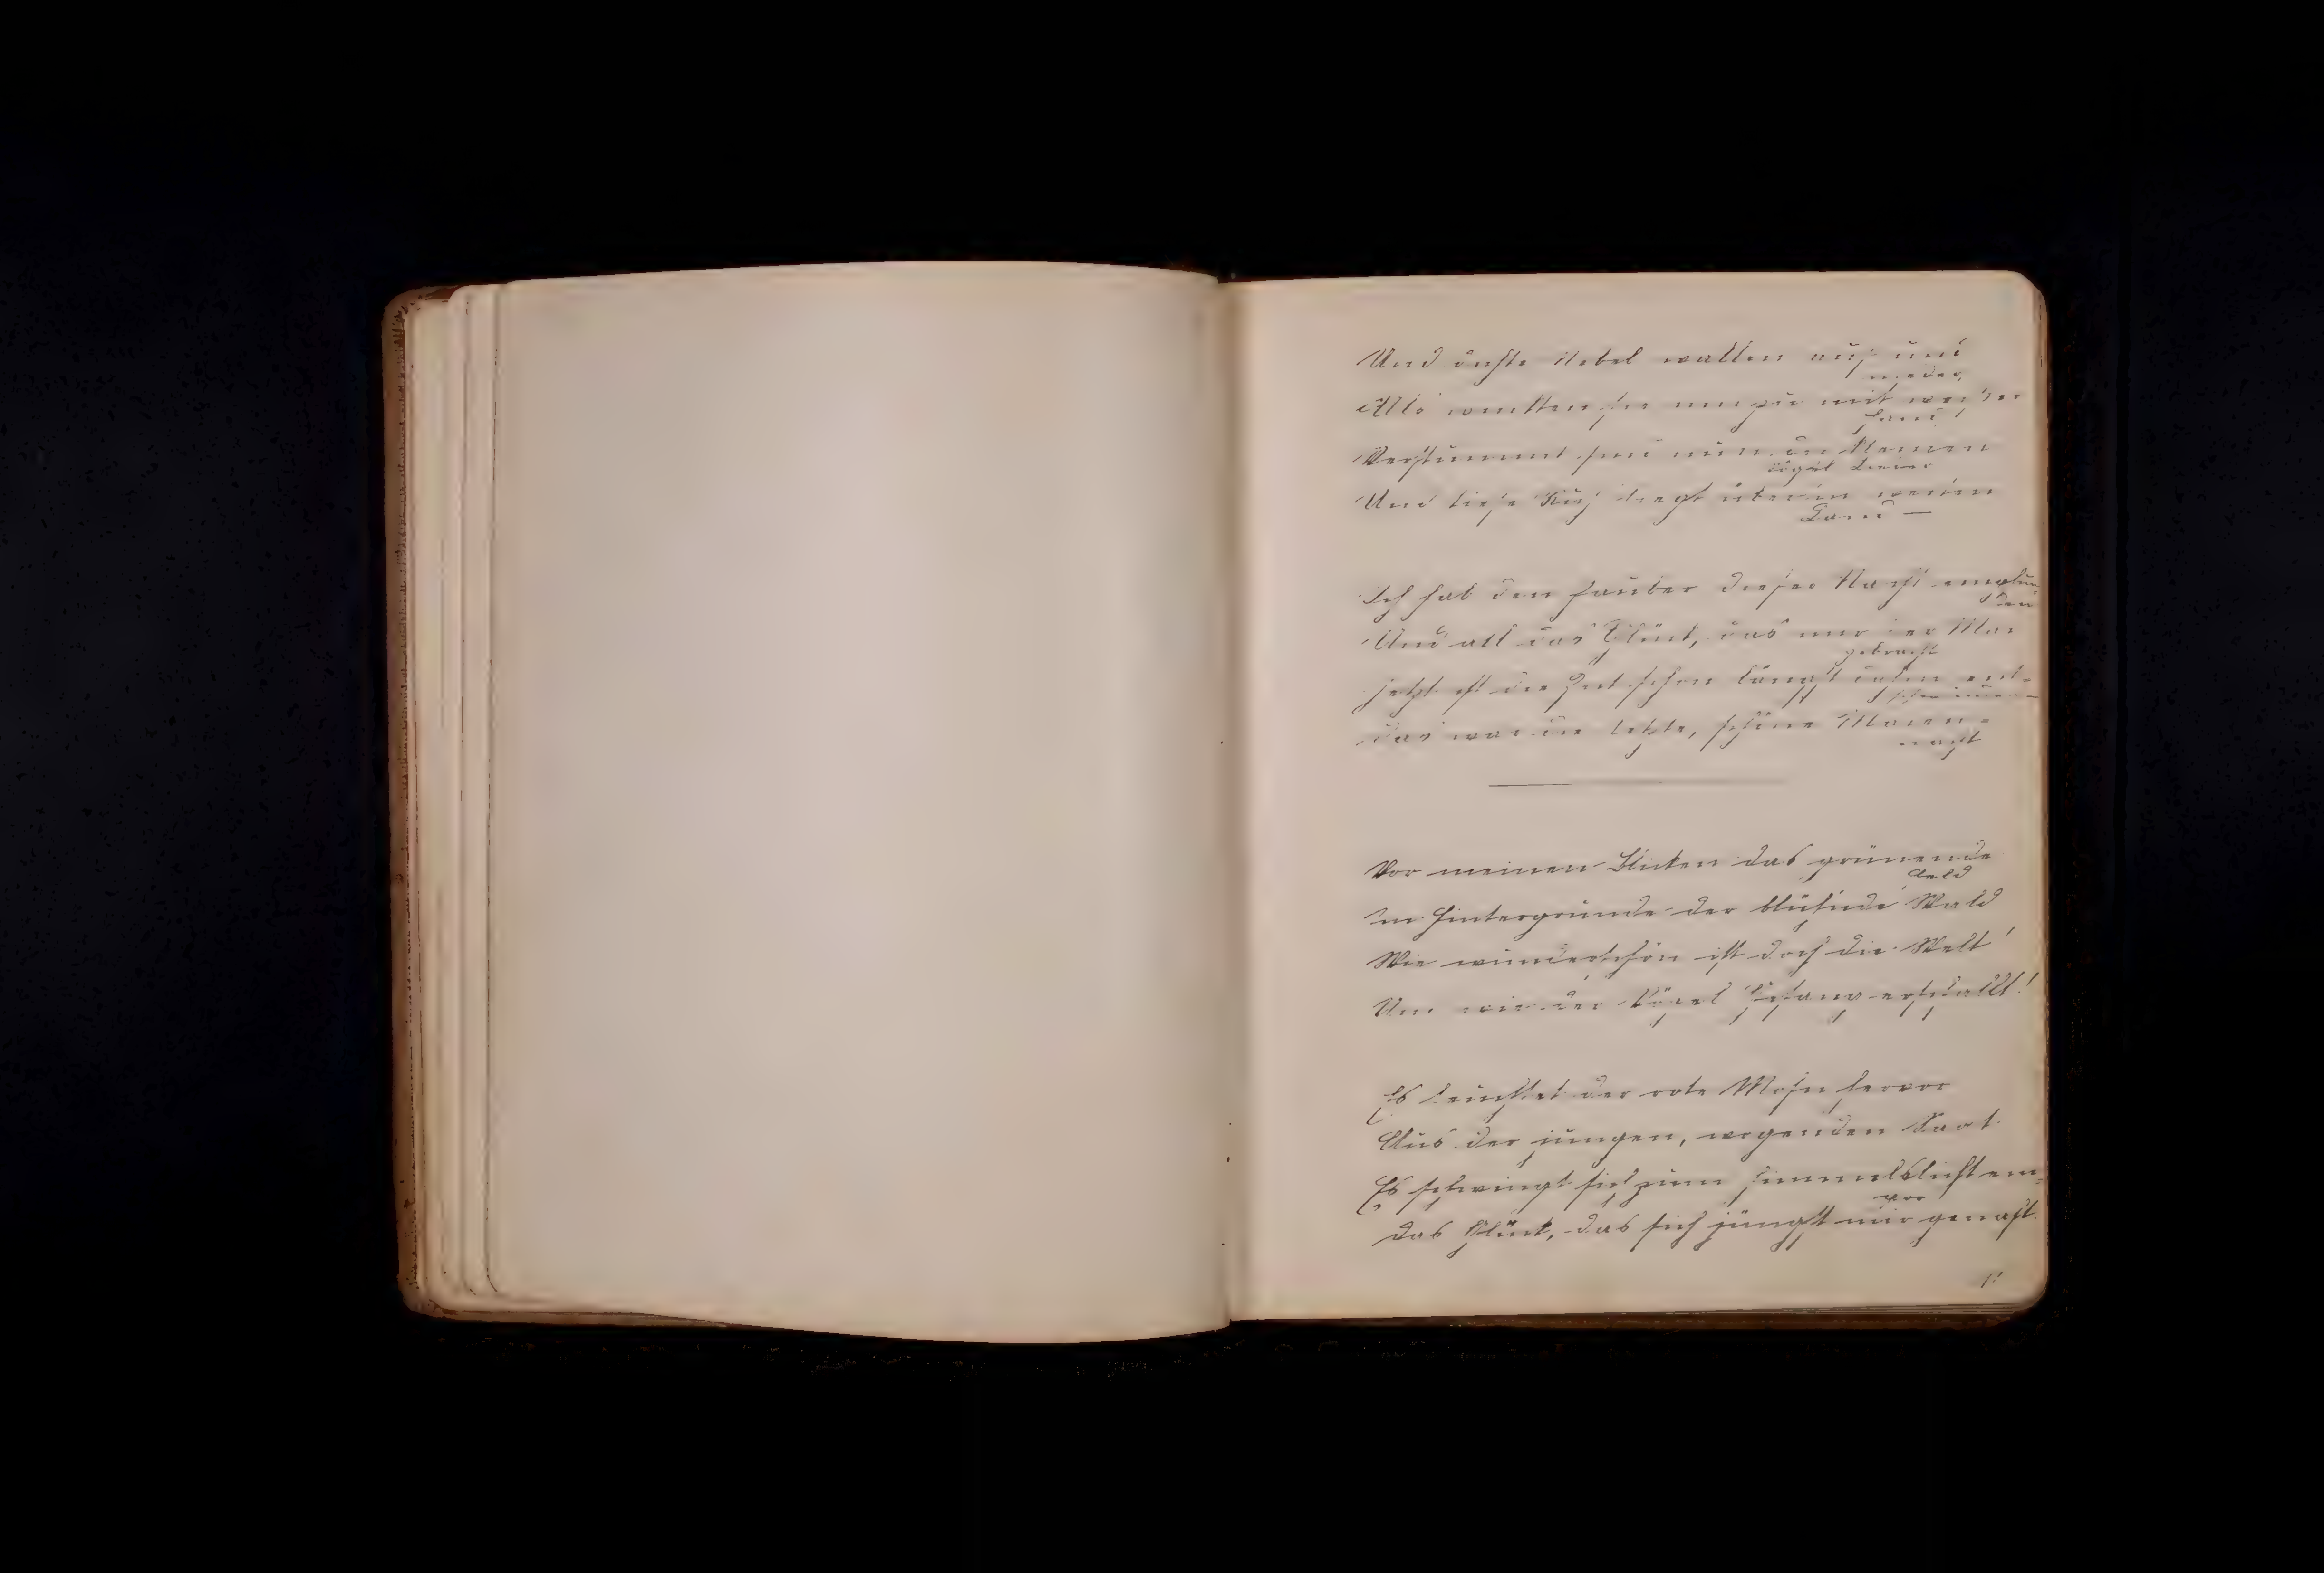 Und dichte Nebel wallen auf und
nieder,
Als winkten sie uns zu mit weißer
Hand,
Verstummt sind nun die kleinen
Vögel Lieder
Und tiefe Ruh liegt über'm weiten
Land —
Ich hab den Zauber dieser Nacht empfun-
den
Und all das Glück, das mir der Mai
gebracht
Jetzt ist die Zeit schon längst dahin ent-
schwunden —
Das war die letzte, schöne Maien-
nacht
Vor meinen Blicken das grünende
Feld
Im Hintergrunde der blühnde Wald
Wie wunderschön ist doch die Welt!
Und wie der Vögel Gesang erschallt!
Es leuchtet der rote Mohn hervor
Aus der jungen, wogenden Saat
Es schwingt sich zum Himmelslicht em-
por
Das Glück, das sich jüngst mir genaht.